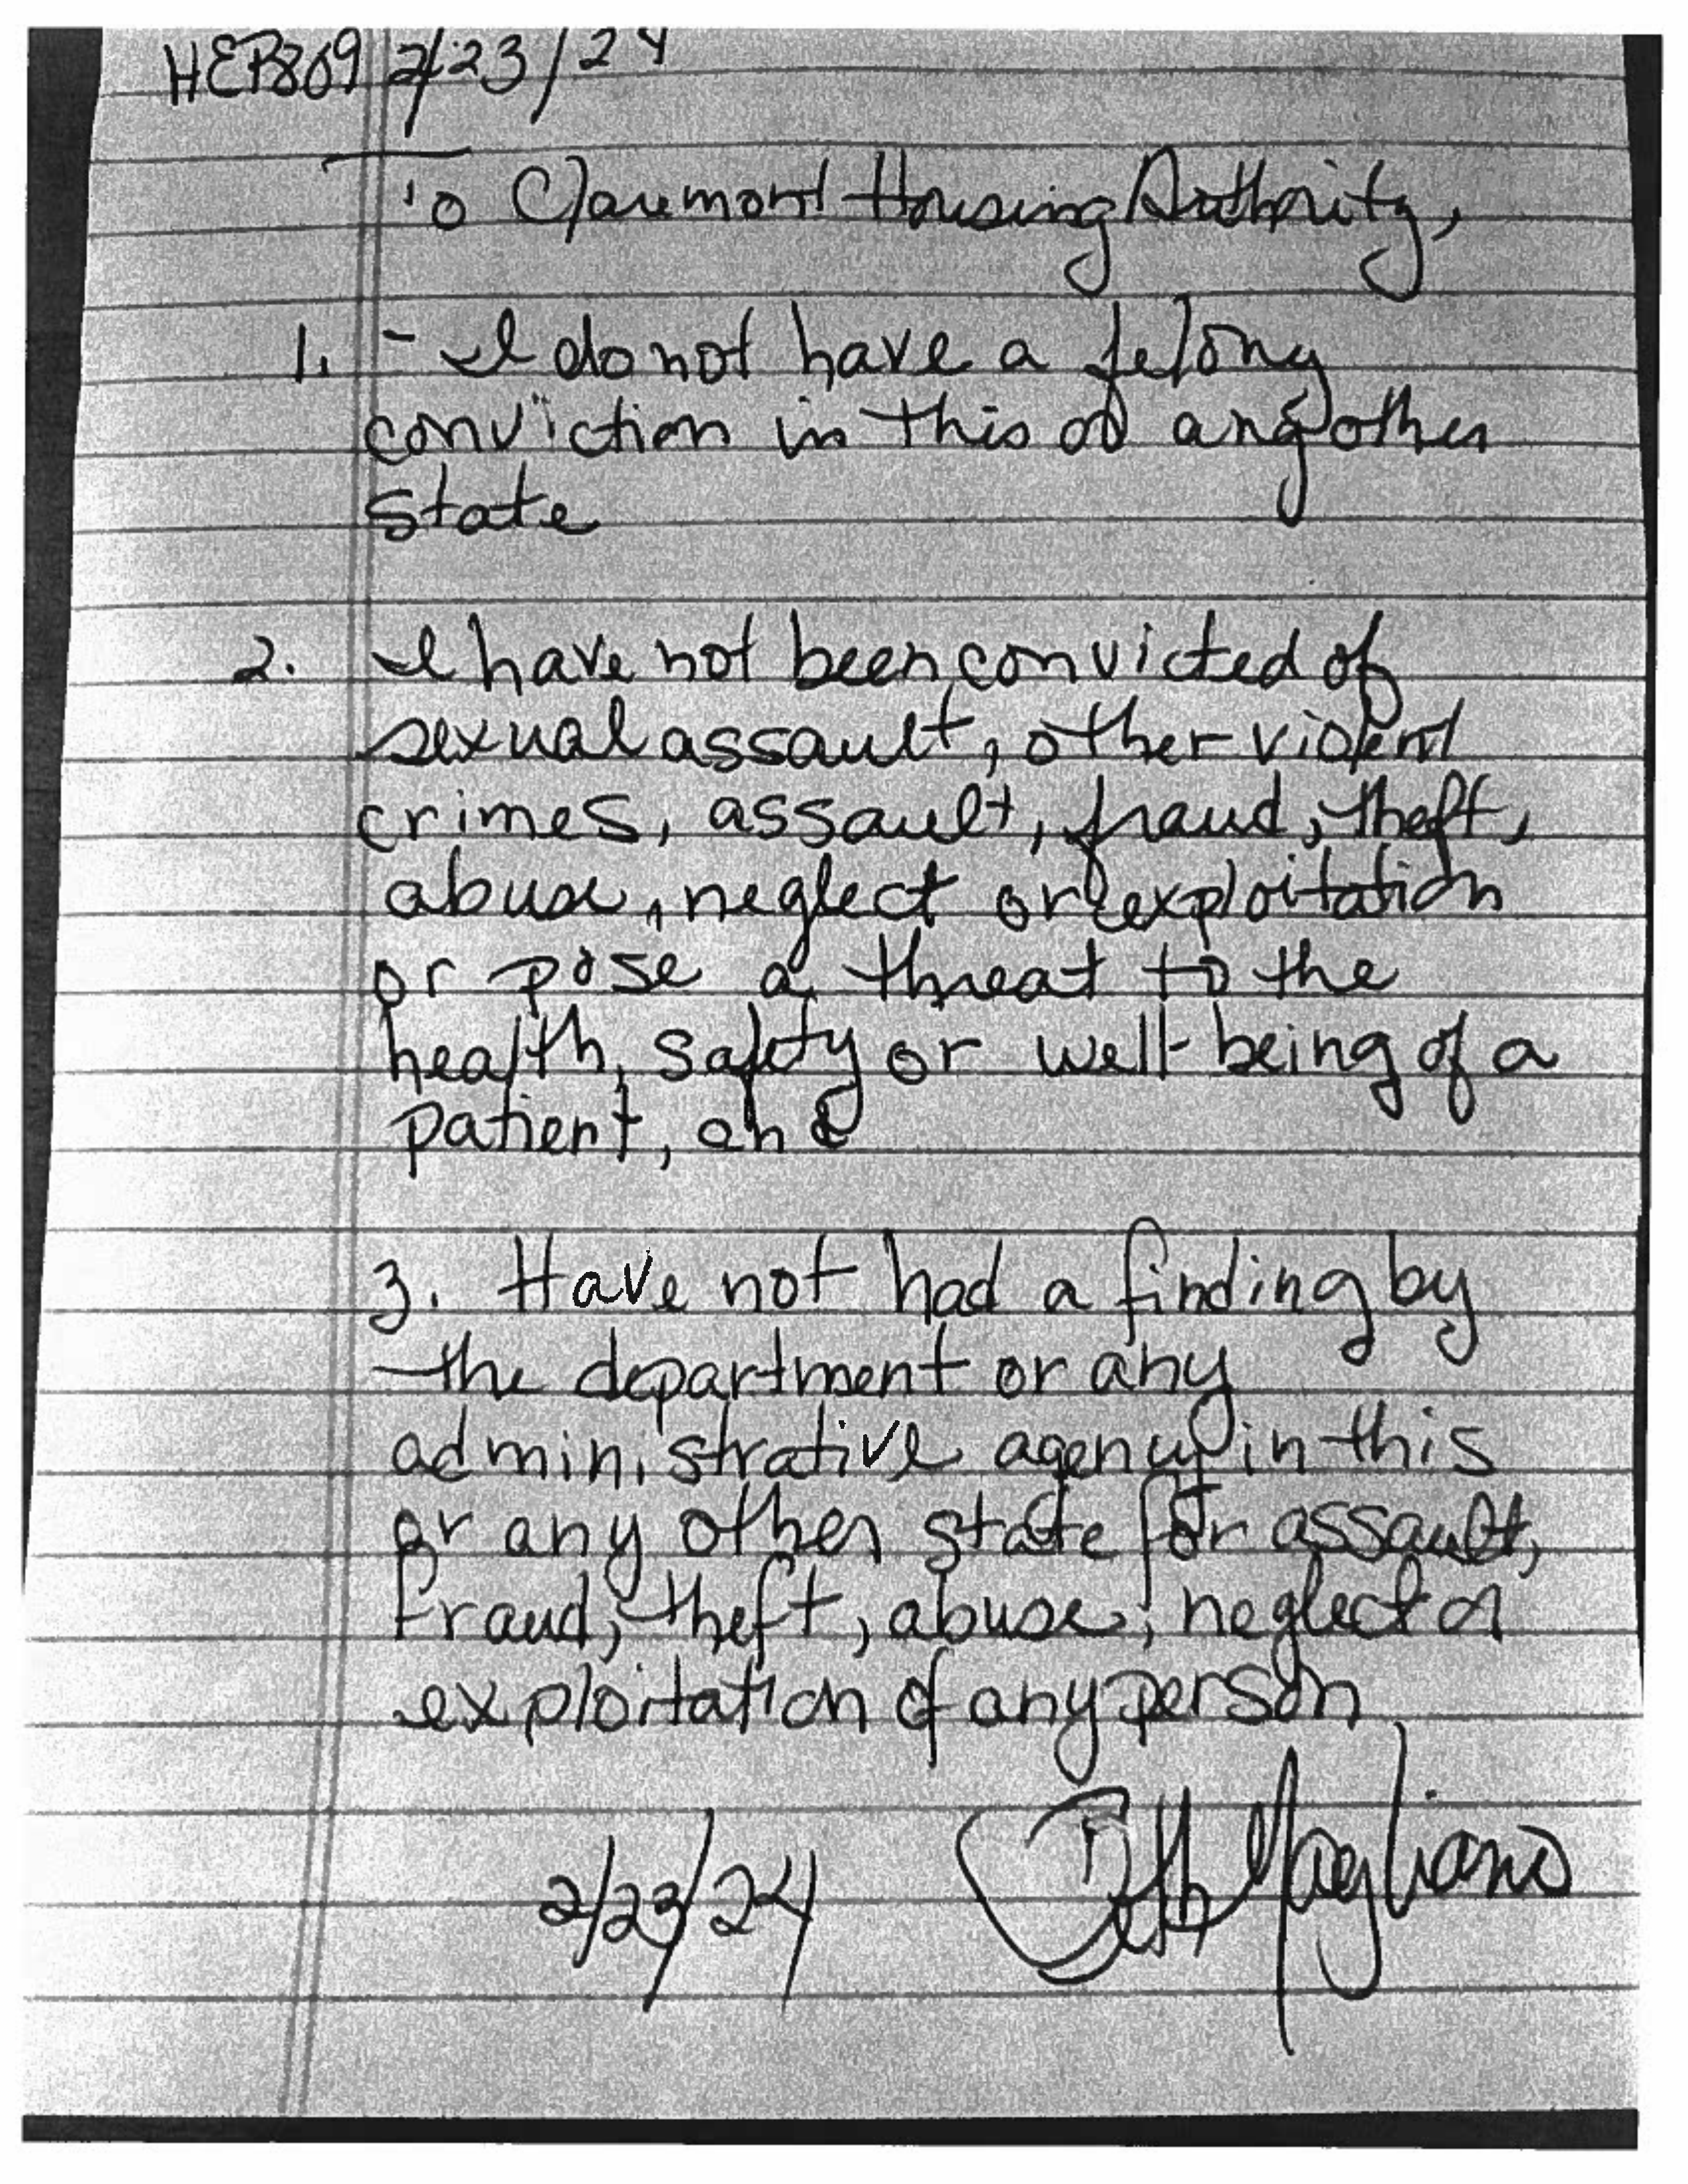 HEP809 2/23/24
To Claremont Housing Authority,
1. - I do not have a felony
conviction in this or any other
state
2. I have not been convicted of
sexual assault, other violent
crimes, assault, fraud, theft,
abuse, neglect or exploitation
or pose a threat to the
health, safety or well-being of a
patient, and
3. Have not had a finding by
the department or any
administrative agency in this
or any other state for assault,
fraud, theft, abuse, neglect or
exploitation of any person
2/23/24 Beth Magliano